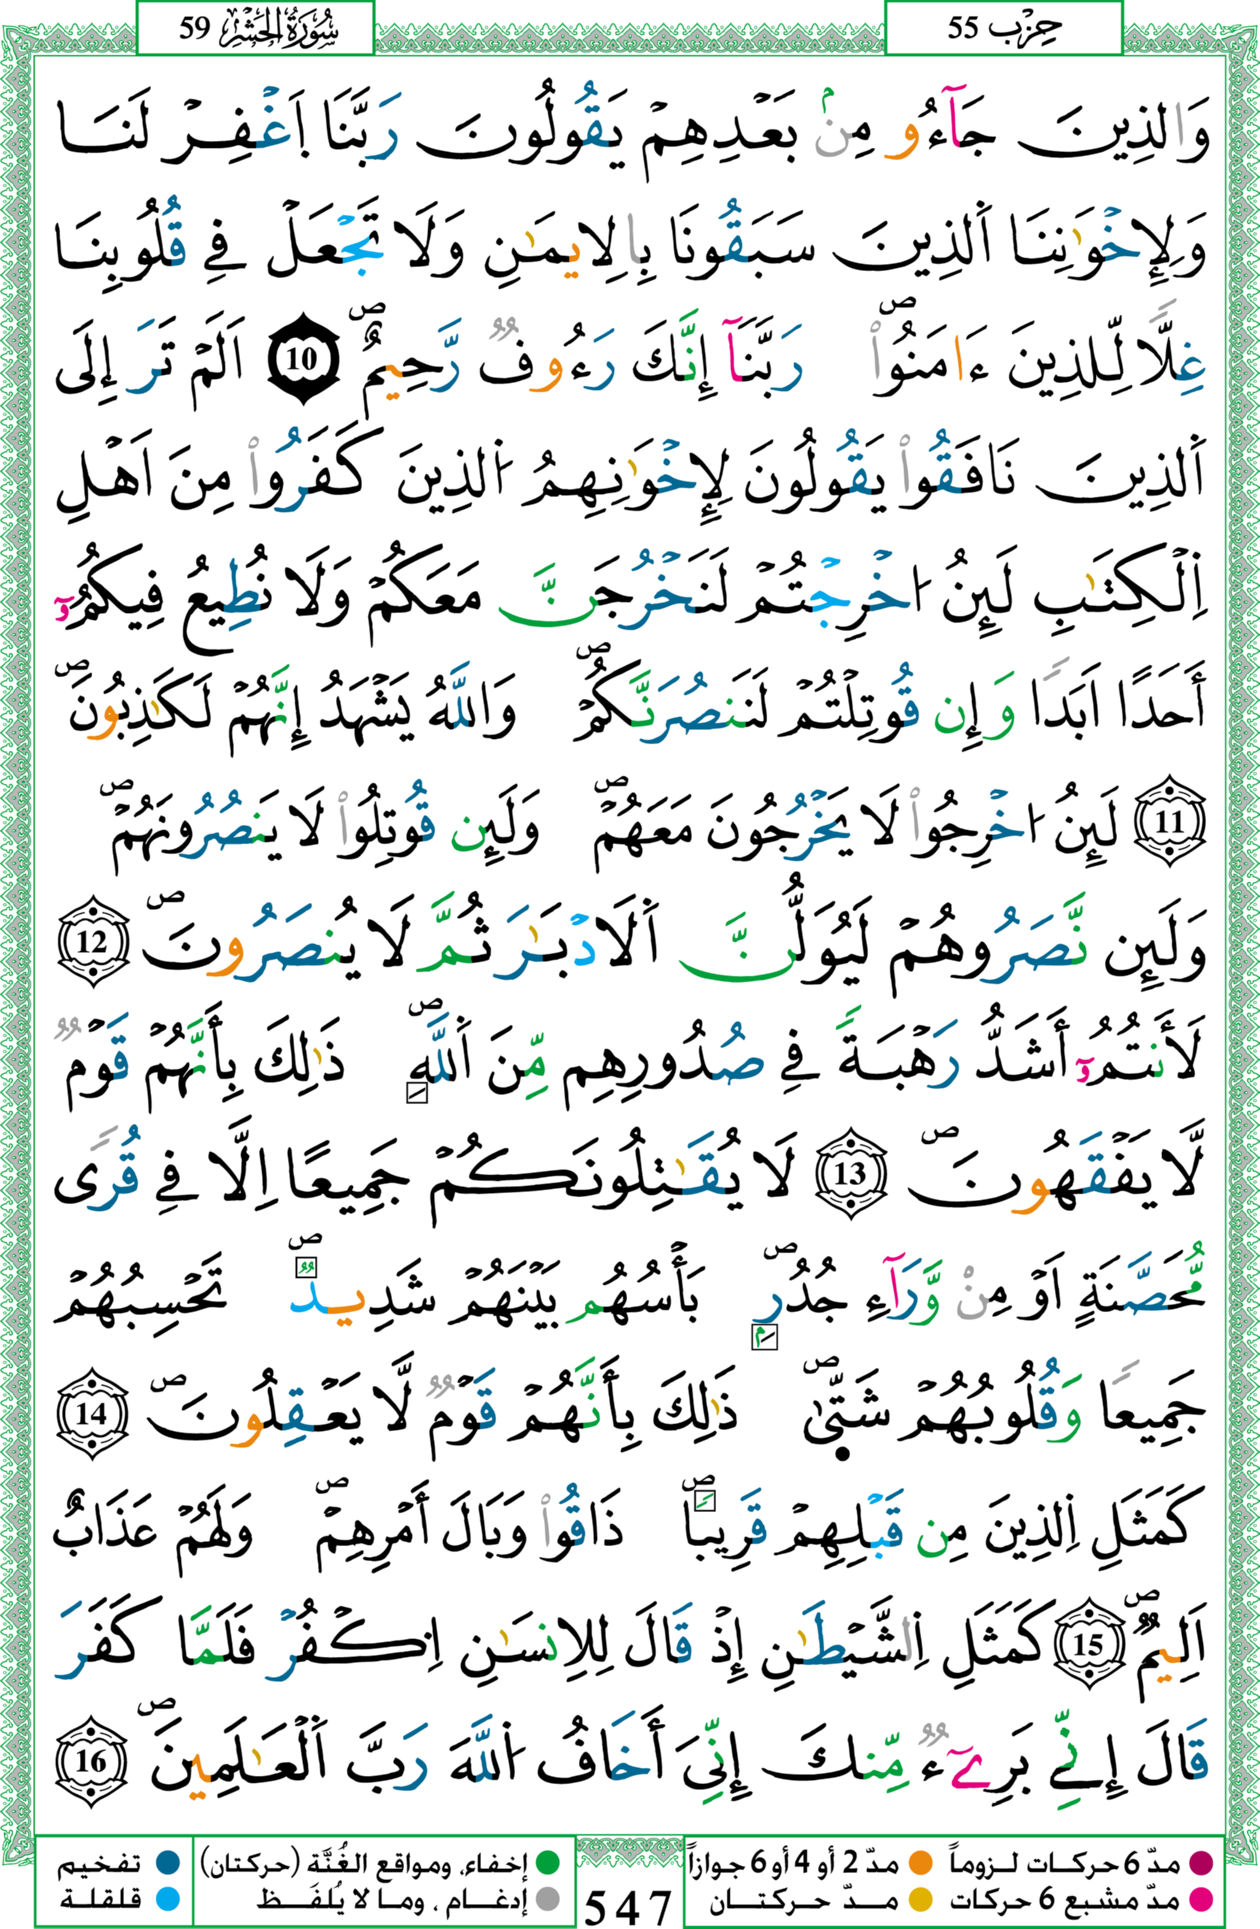 حِزْب 55
سُورَةُ الحَشْرِ 59
وَالذِينَ جَآءُو مِنۢ بَعْدِهِمْ يَقُولُونَ رَبَّنَا اَ۪غْفِرْ لَنَا
وَلِإِخْوَٰنِنَا اَ۬لذِينَ سَبَقُونَا بِالِايمَٰنِ وَلَا تَجْعَلْ فِے قُلُوبِنَا
غِلّاٗ لِّلذِينَ ءَامَنُواْۖ رَبَّنَآ إِنَّكَ رَءُوفٞ رَّحِيمٌۖ 10 اَلَمْ تَرَ إِلَى
اَ۬لذِينَ نَافَقُواْ يَقُولُونَ لِإِخْوَٰنِهِمُ اُ۬لذِينَ كَفَرُواْ مِنَ اَهْلِ
اِ۬لْكِتَٰبِ لَئِنُ ا۟خْرِجْتُمْ لَنَخْرُجَنَّ مَعَكُمْ وَلَا نُطِيعُ فِيكُمُۥٓ
أَحَداً اَبَداٗ وَإِن قُوتِلْتُمْ لَنَنصُرَنَّكُمْۖ وَاللَّهُ يَشْهَدُ إِنَّهُمْ لَكَٰذِبُونَۖ
11 لَئِنُ ا۟خْرِجُواْ لَا يَخْرُجُونَ مَعَهُمْۖ وَلَئِن قُوتِلُواْ لَا يَنصُرُونَهُمْۖ
وَلَئِن نَّصَرُوهُمْ لَيُوَلُّنَّ اَ۬لَادْبَٰرَ ثُمَّ لَا يُنصَرُونَۖ 12
لَأَنتُمُۥٓ أَشَدُّ رَهْبَةٗ فِے صُدُورِهِم مِّنَ اَ۬للَّهِۖ ذَٰلِكَ بِأَنَّهُمْ قَوْمٞ
لَّا يَفْقَهُونَۖ 13 لَا يُقَٰتِلُونَكُمْ جَمِيعاً اِلَّا فِے قُرىٗ
مُّحَصَّنَةٍ اَوْ مِنْ وَّرَآءِ جُدُرِۢۖ بَأْسُهُم بَيْنَهُمْ شَدِيدٞۖ تَحْسِبُهُمْ
جَمِيعاٗ وَقُلُوبُهُمْ شَتّ۪ىٰۖ ذَٰلِكَ بِأَنَّهُمْ قَوْمٞ لَّا يَعْقِلُونَۖ 14
كَمَثَلِ اِ۬لذِينَ مِن قَبْلِهِمْ قَرِيباٗۖ ذَاقُواْ وَبَالَ أَمْرِهِمْۖ وَلَهُمْ عَذَابٌ
اَلِيمٌۖ 15 كَمَثَلِ اِ۬لشَّيْطَٰنِ إِذْ قَالَ لِلِانسَٰنِ اِ۟كْفُرْ فَلَمَّا كَفَرَ
قَالَ إِنِّے بَرِےٓءٞ مِّنكَ إِنِّيَ أَخَافُ اُ۬للَّهَ رَبَّ اَ۬لْعَٰلَمِينَۖ 16
مدّ 6 حركات لـزوماً مدّ 2 أو 4 أو 6 جوازاً إخفاء، ومواقع الغُنَّة (حركتان) تفخيم
مدّ مشبع 6 حركات مـدّ حـركتــان إدغـام ، ومـا لا يُلفَـظ قلقلـة
547